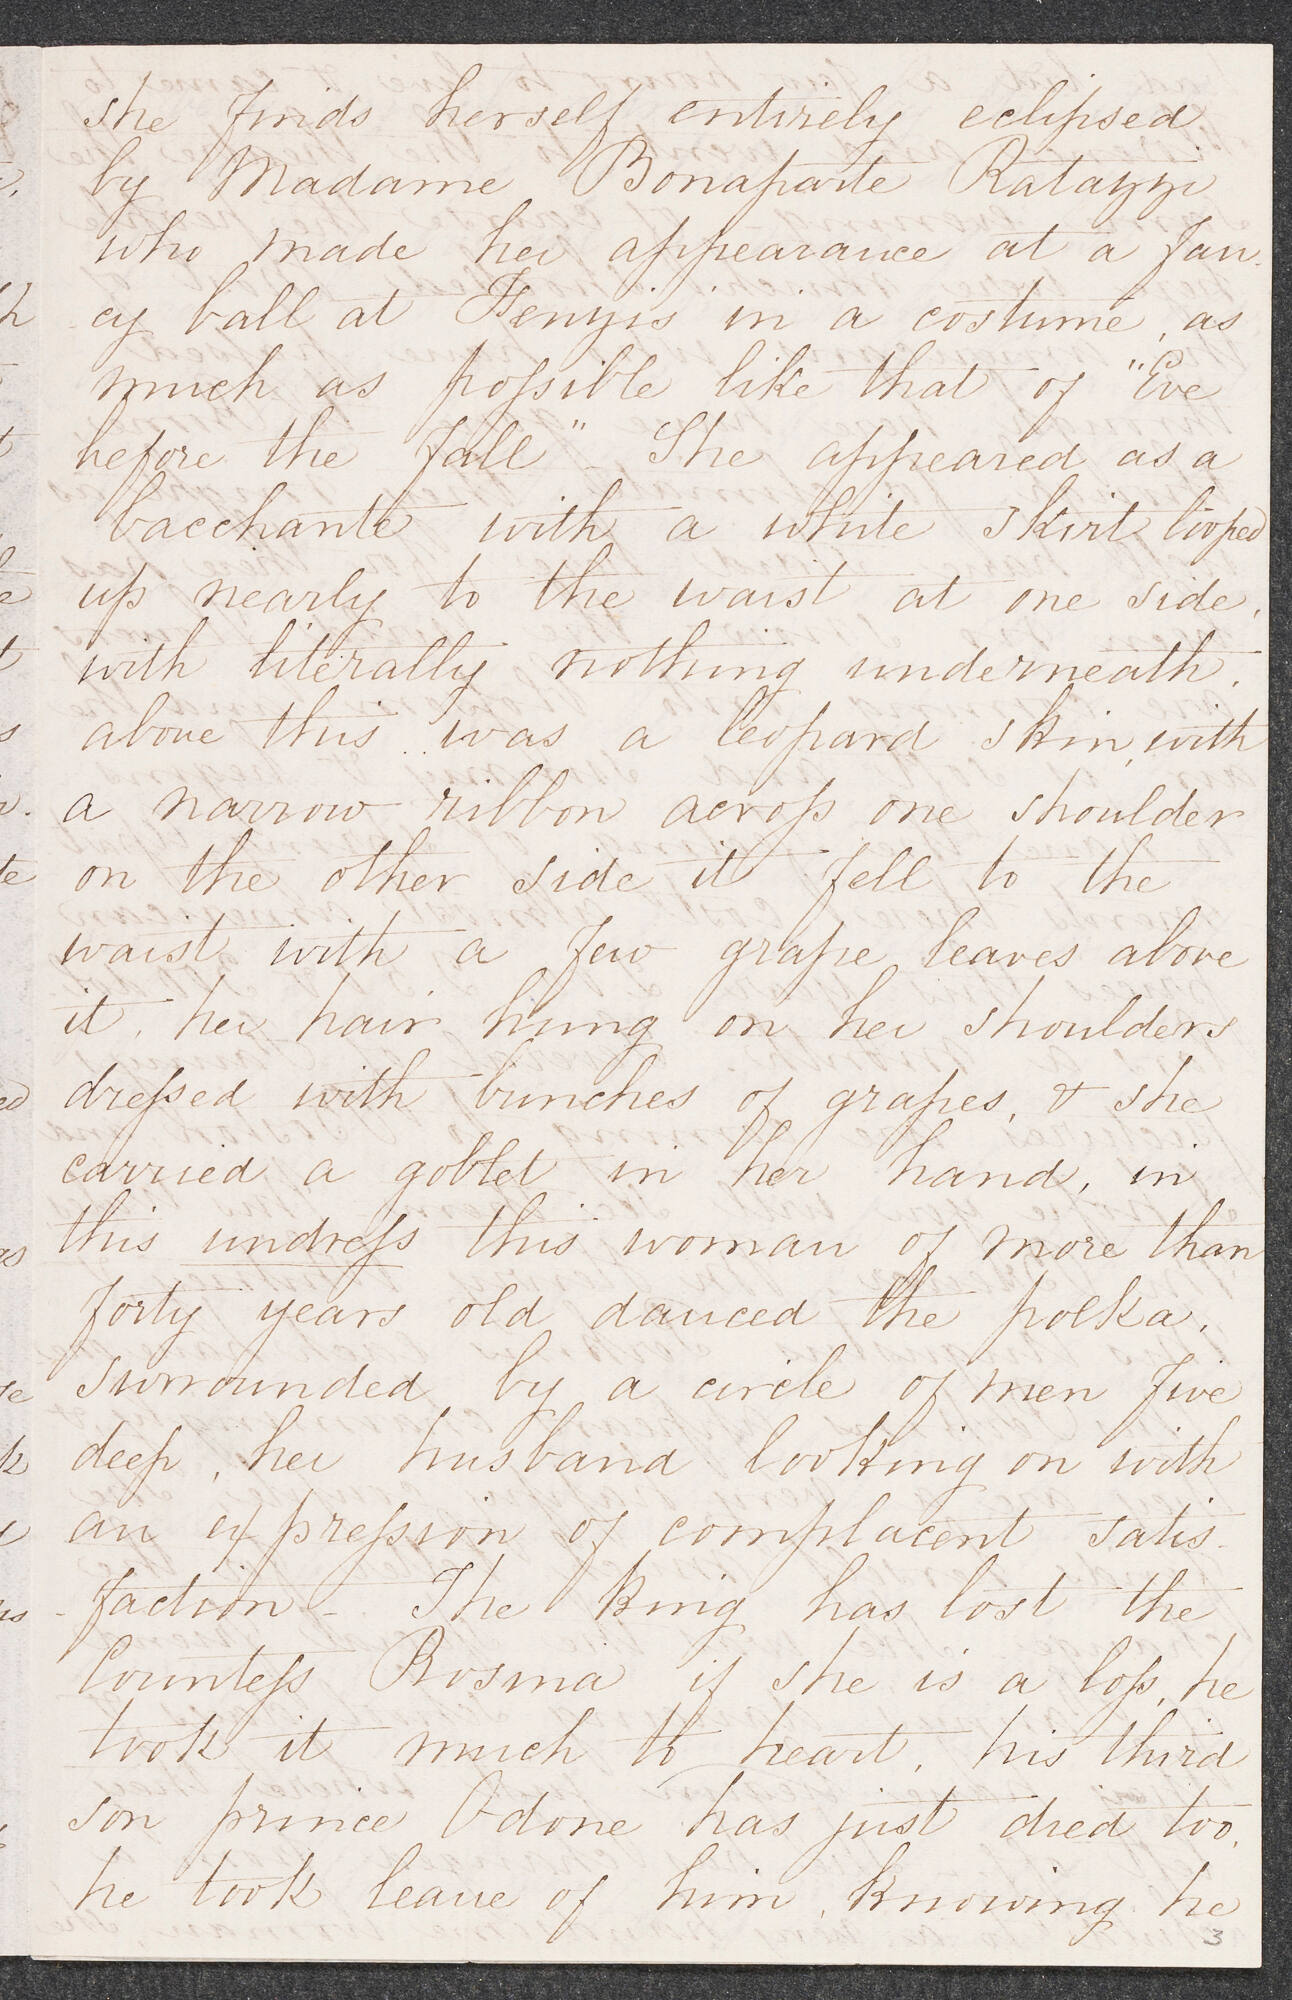 she finds herself entirely eclipsed
by Madame Bonaparte Ratazzi
who made her appearance at a fan-
cy ball at Fenzis in a costume, as
much as possible like that of "Eve
before the fall" - She appeared as a
bacchante with a white skirt looped
up nearly to the waist at one side,
with literally nothing underneath,
above this was a leopard skin, with
a narrow ribbon across one shoulder
on the other side it fell to the
waist with a few grape leaves above
it, her hair hung on her shoulders
dressed with bunches of grapes, & she
carried a goblet in her hand, in
this undress this woman of more than
forty years old danced the polka,
surrounded by a circle of men five
deep, her husband looking on with
an expression of complacent satis-
-faction - The King has lost the
Countess Rosina if she is a loss, he
took it much to heart, his third
son prince Odone has just died too,
he took leave of him, knowing he
3